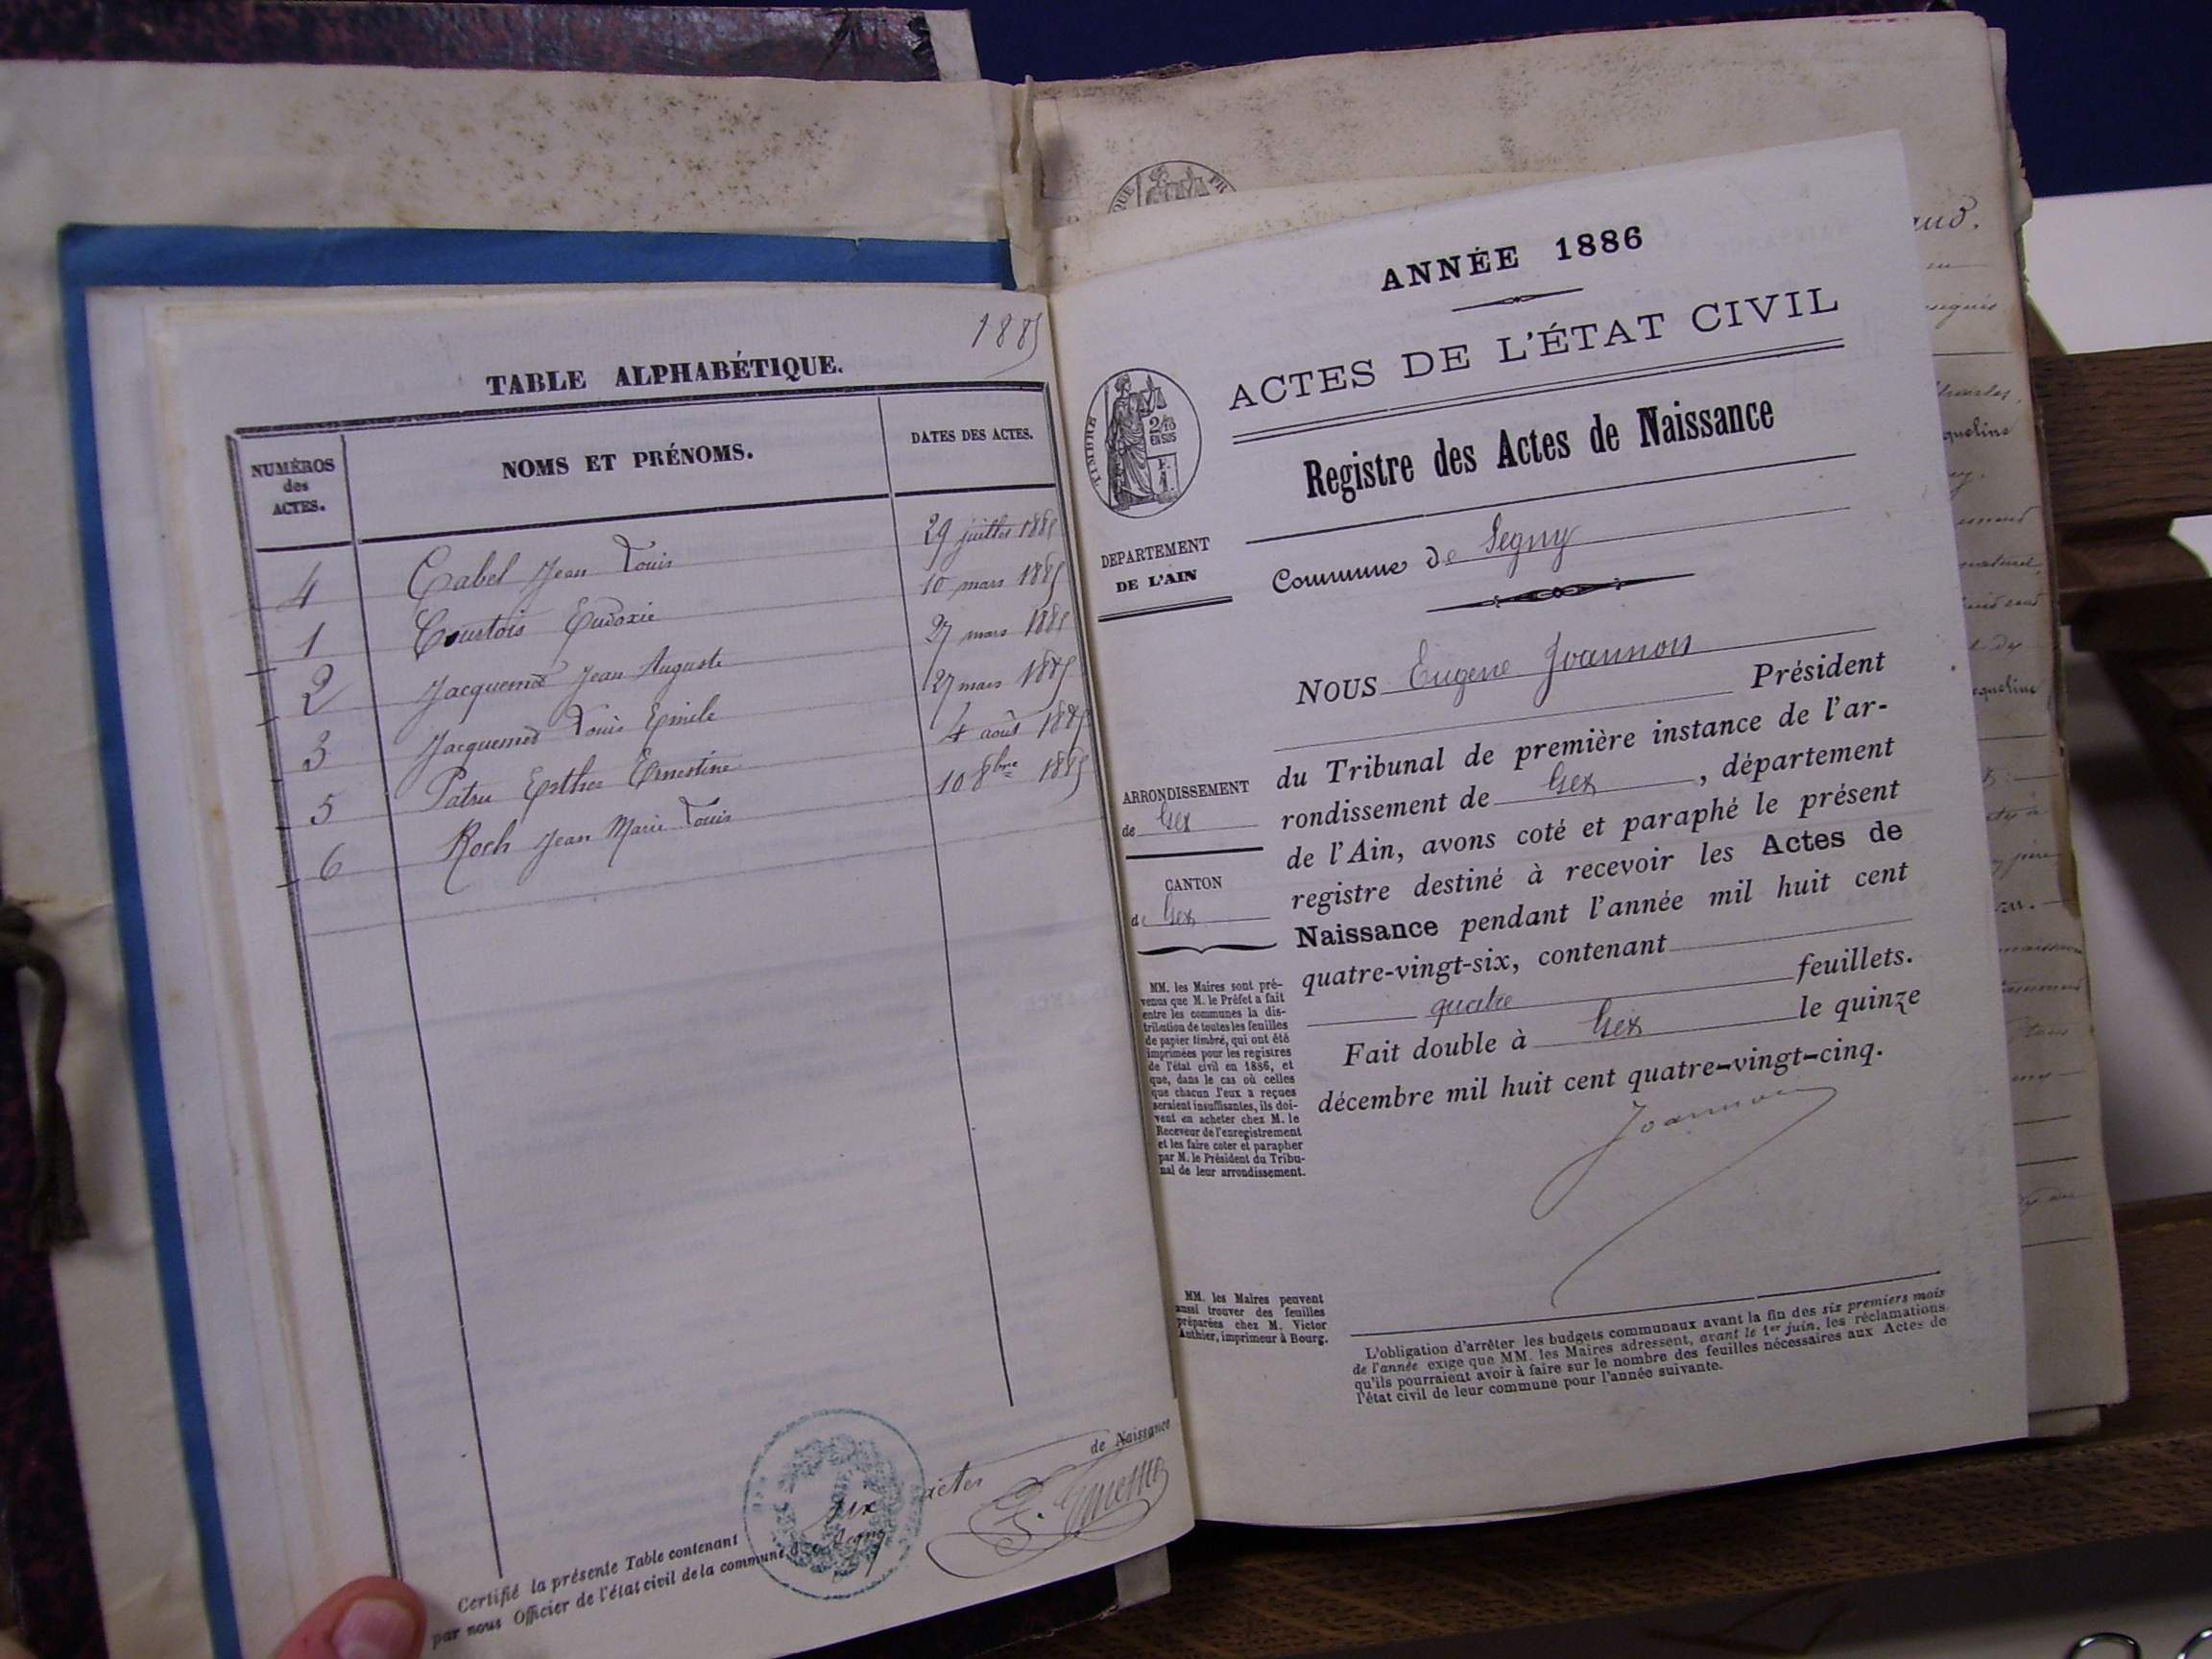 1885
TABLE ALPHABÉTIQUE.
NUMÉROS des ACTES.
NOMS ET PRÉNOMS.
DATES DES ACTES.
4 Cabel Jean Louis 29 juillet 1885
1 Courtois Eudoxie 10 mars 1885
2 Jacquemet Jean Auguste 27 mars 1885
3 Jacquemet Louis Emile 27 mars 1885
5 Patru Esther Ernestine 4 août 1885
6 Roch Jean Marie Louis 10 8bre 1885
Certifié la présente Table contenant six actes de Naissance
par nous Officier de l'état civil de la commune de Segny
ANNÉE 1886
ACTES DE L'ÉTAT CIVIL
Registre des Actes de Naissance
TIMBRE
2/10
EN SUS
DEPARTEMENT
DE L'AIN
Commune de Segny
NOUS Eugène Joannon
Président
du Tribunal de première instance de l'ar-
rondissement de Gex, département
de l'Ain, avons coté et paraphé le présent
registre destiné à recevoir les Actes de
Naissance pendant l'année mil huit cent
quatre-vingt-six, contenant
quatre feuillets.
Fait double à Gex le quinze
décembre mil huit cent quatre-vingt-cinq.
Joannon
ARRONDISSEMENT
de Gex
CANTON
de Gex
MM. les Maires sont pré-
venus que M. le Préfet a fait
entre les communes la dis-
tribution de toutes les feuilles
de papier timbré, qui ont été
imprimées pour les registres
de l'état civil en 1886, et
que, dans le cas où celles
que chacun d'eux a reçues
seraient insuffisantes, ils doi-
vent en acheter chez M. le
Receveur de l'enregistrement
et les faire coter et parapher
par M. le Président du Tribu-
nal de leur arrondissement.
MM. les Maires peuvent
aussi trouver des feuilles
préparées chez M. Victor
Authier, imprimeur à Bourg.
L'obligation d'arrêter les budgets communaux avant la fin des six premiers mois
de l'année exige que MM. les Maires adressent, avant le 1er juin, les réclamations
qu'ils pourraient avoir à faire sur le nombre des feuilles nécessaires aux Actes de
l'état civil de leur commune pour l'année suivante.